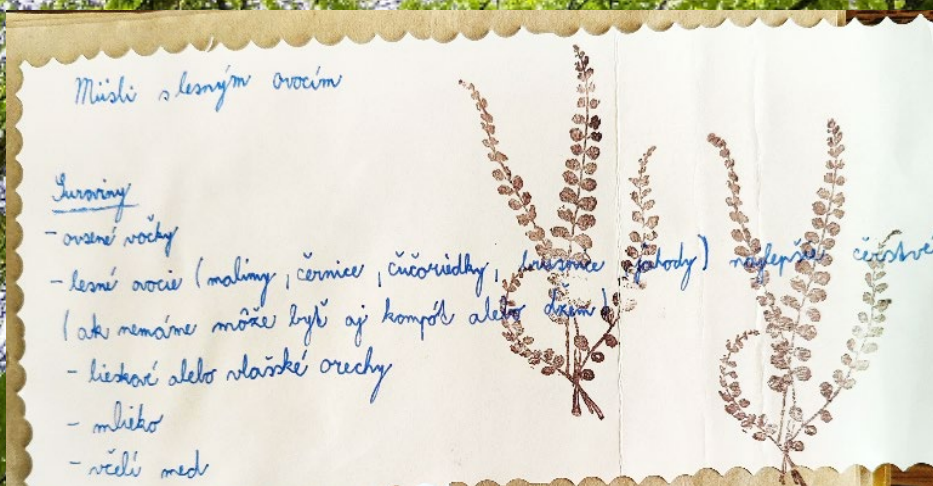 Müsli s lesným ovocím
Suroviny
- ovsené vločky
- lesné ovocie (maliny, černice, čučoriedky, brusnice, jahody) najlepšie čerstvé
(ak nemáme môže byť aj kompót alebo džem)
- lieskové alebo vlašské orechy
- mlieko
- včelí med